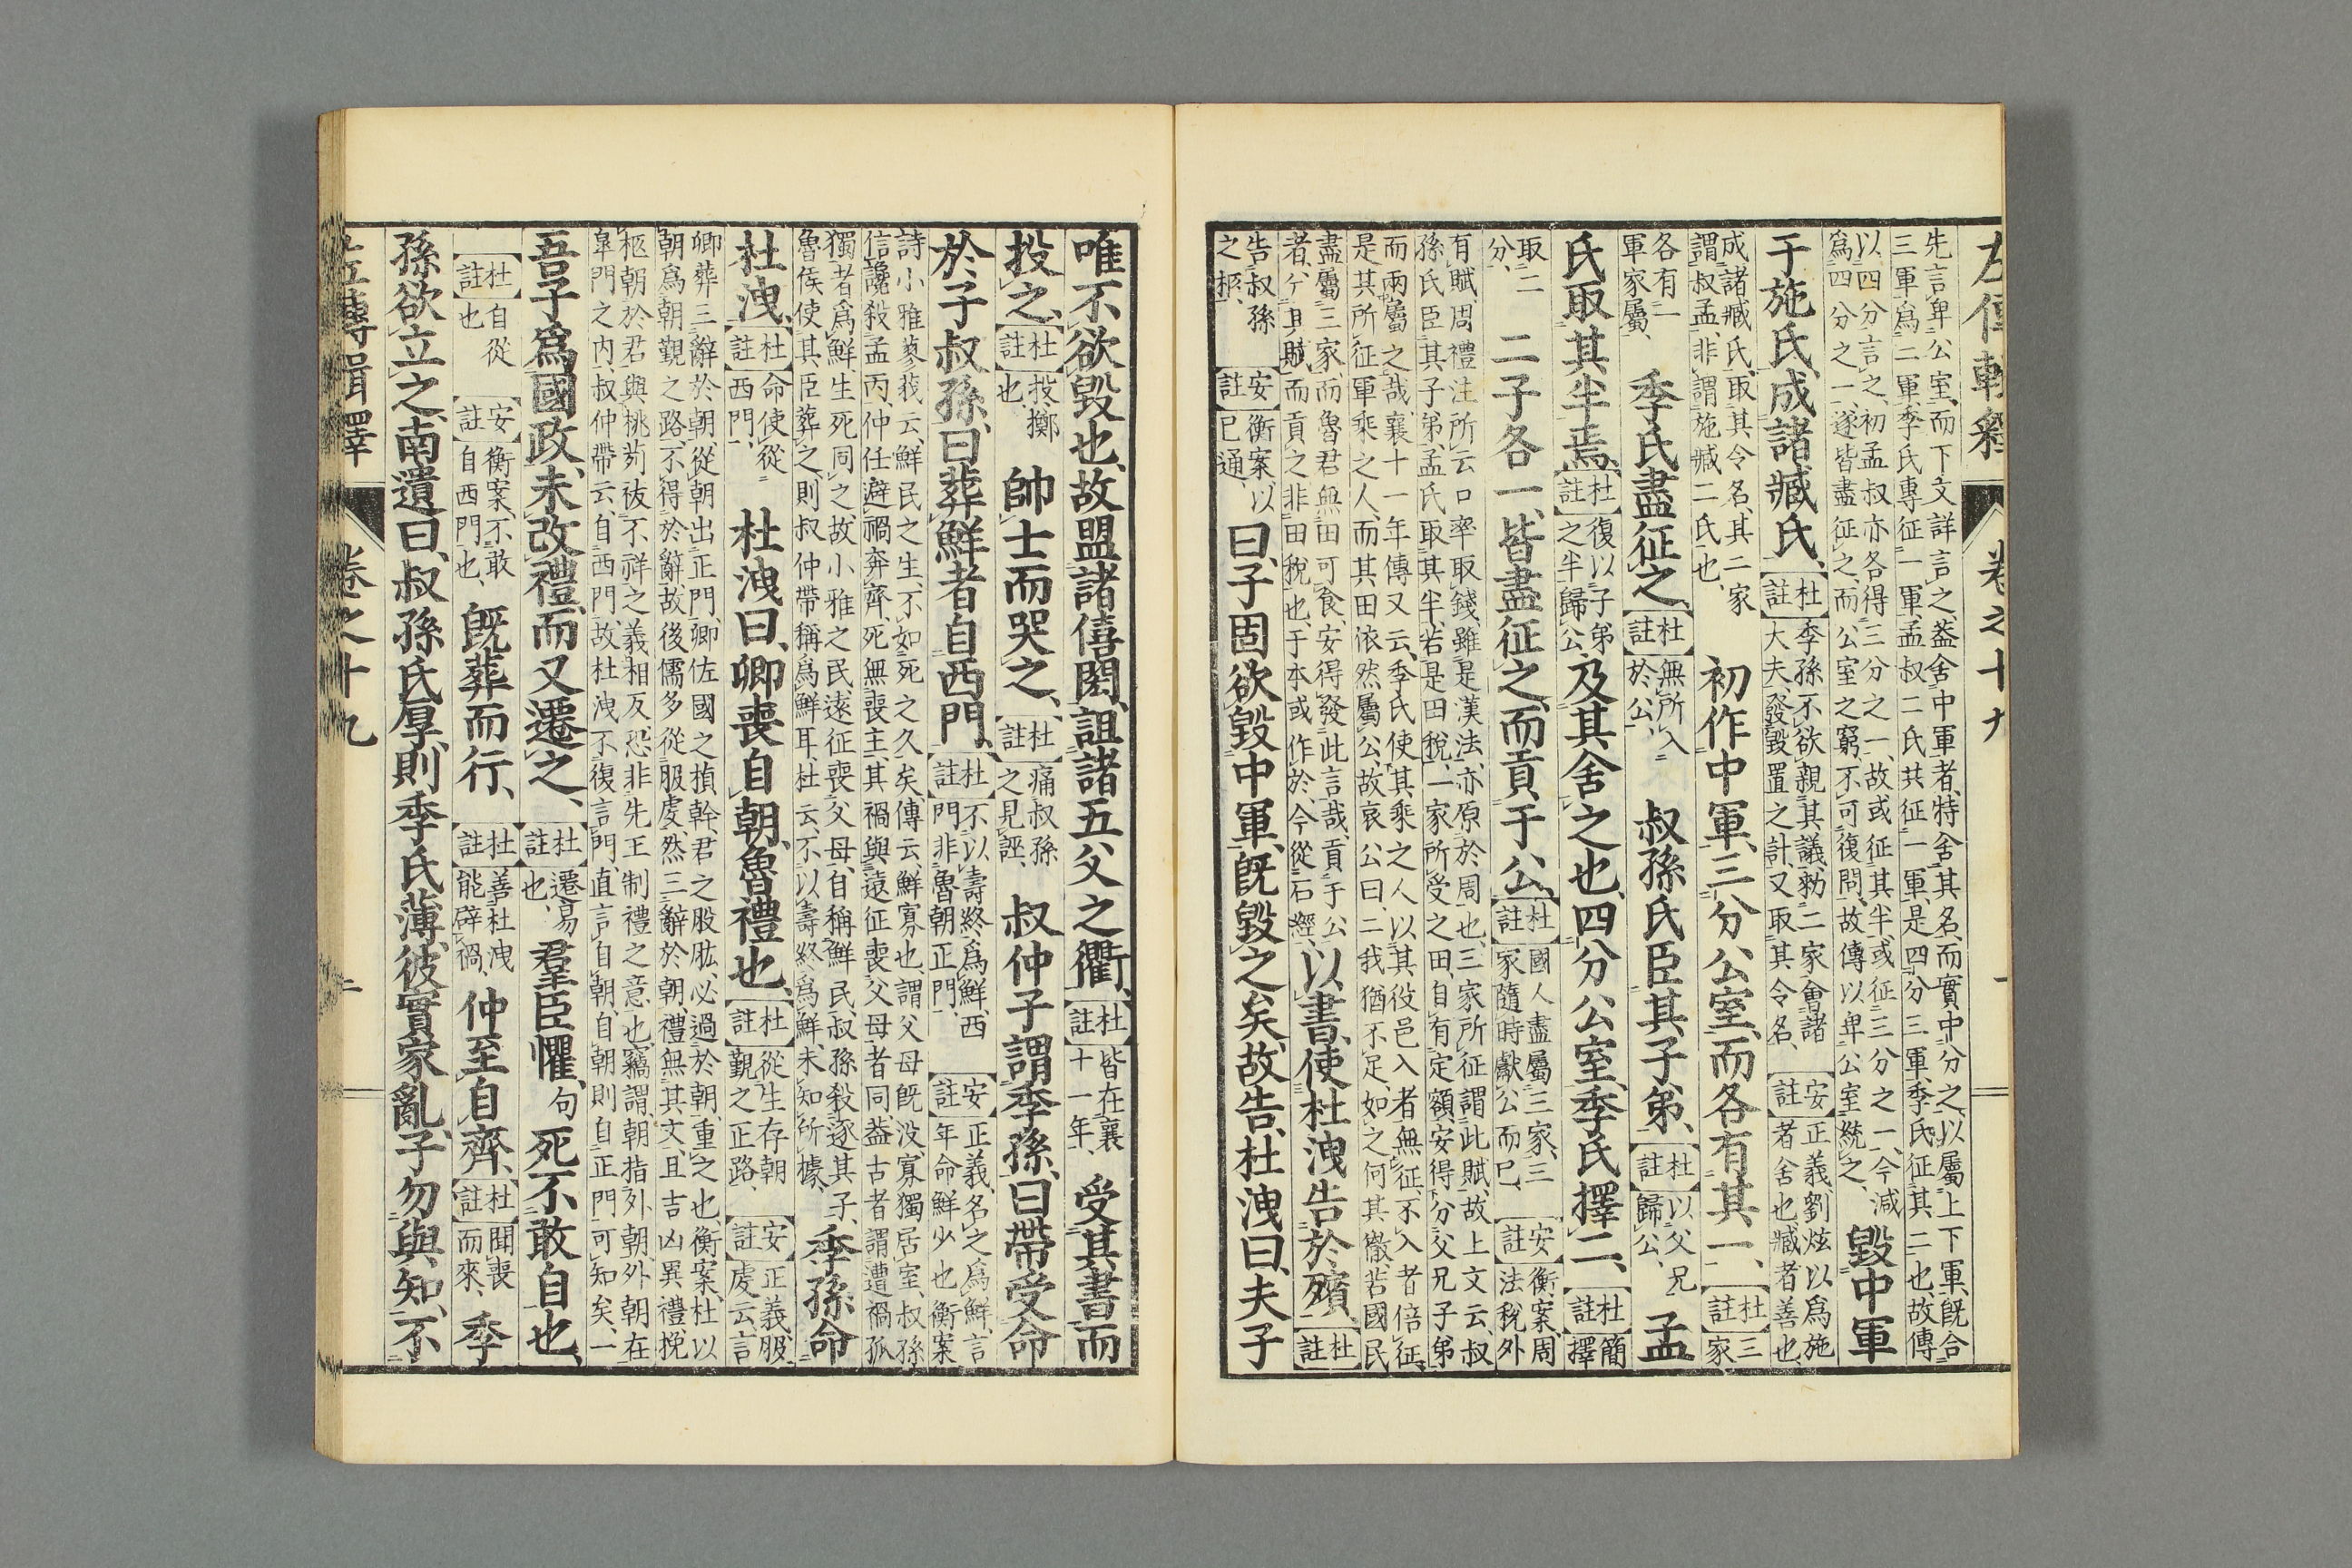 左傳輯釋 卷之十九 一
先言卑公室、而下文詳言之、蓋舍中軍者、特舍其名、而實中分之、以屬上下軍、既合
三軍爲二軍、季氏專征一軍、孟叔二氏共征一軍、是四分三軍、季氏征其二也、故傳
以四分言之、初孟叔亦各得三分之一、故或征其半、或征三分之一、今減
爲四分之一、遂皆盡征之、而公室之窮、不可復問、故傳以卑公室統之、
毀中軍
于施氏、成諸臧氏、
杜註 季孫不欲親其議、勑二家會諸
大夫、發毀置之計、又取其令名、
安註 正義、劉炫以爲施
者舍也、臧者善也、
成諸臧氏、取其令名、其二家
謂叔孟、非謂施臧二氏也、
初作中軍、三分公室、而各有其一、
杜註 三
家
各有一
軍家屬、
季氏盡征之、
杜註 無所入
於公、
叔孫氏臣其子弟、
杜註 以父兄
歸公、
孟
氏取其半焉、
杜註 復以子弟
之半歸公、
及其舍之也、四分公室、季氏擇二、
杜註 簡
擇
取二
分、
二子各一、皆盡征之、而貢于公、
杜註 國人盡屬三家、三
家隨時獻公而已、
安註 衡案、周
法税外
有賦、周禮注所云口率取錢、雖是漢法、亦原於周也、三家所征謂此賦、故上文云、叔
孫氏臣其子弟、孟氏取其半、若是田税、一家所受之田、自有定額、安得分父兄子弟
而兩屬之哉、襄十一年傳又云、季氏使其乘之人、以其役邑入者無征、不入者倍征、
是其所征軍乘之人、而其田依然屬公、故哀公曰、二我猶不足、如之何其徹、若國民
盡屬三家、而魯君無田可食、安得發此言哉、貢于公
者、分其賦而貢之、非田税也、于本或作於、今從石經、
以書、使杜洩告於殯、
杜註
告叔孫
之柩、
安註 衡案、以
已通、
曰、子固欲毀中軍、既毀之矣、故告、杜洩曰、夫子
唯不欲毀也、故盟諸僖閎、詛諸五父之衢、
杜註 皆在襄
十一年、
受其書而
投之、
杜註 投擲
也、
帥士而哭之、
杜註 痛叔孫
之見誣、
叔仲子謂季孫、曰帶受命
於子叔孫、曰葬鮮者自西門、
杜註 不以壽終爲鮮、西
門非魯朝正門、
安註 正義、名之爲鮮、言
年命鮮少也、衡案
詩小雅蓼莪云、鮮民之生、不如死之久矣、傳云、鮮寡也、謂父母既没、寡獨居室、叔孫
信讒殺孟丙、仲任避禍奔齊、死無喪主、其禍與遠征喪父母者同、蓋古者謂遭禍孤
獨者爲鮮、生死同之、故小雅之民、遠征喪父母、自稱鮮民、叔孫殺逐其子、
魯侯使其臣葬之、則叔仲帶稱爲鮮耳、杜云、不以壽終爲鮮、未知所據、
季孫命
杜洩、
杜註 命使從
西門、
杜洩曰、卿喪自朝、魯禮也、
杜註 從生存朝
覲之正路、
安註 正義、服
虔云、言
卿葬三辭於朝、從朝出正門、卿佐國之楨幹、君之股肱、必過於朝、重之也、衡案、杜以
朝爲朝覲之路、不得於辭、故後儒多從服虔、然三辭於朝、禮無其文、且吉凶異禮、挽
柩朝於君、與桃茢祓不祥之義相反、恐非先王制禮之意也、竊謂、朝指外朝、外朝在
皐門之内、叔仲帶云、自西門、故杜洩不復言門、直言自朝、自朝則自正門可知矣、一
吾子爲國政、未改禮、而又遷之、
杜註 遷易
也、
羣臣懼句死不敢自也、
杜註 自從
也
安註 衡案、不敢
自西門也、
既葬而行、
杜註 善杜洩
能辟禍、
仲至自齊、
杜註 聞喪
而來、
季
孫欲立之、南遺曰、叔孫氏厚、則季氏薄、彼實家亂、子勿與知、不
左傳輯釋 卷之十九 二